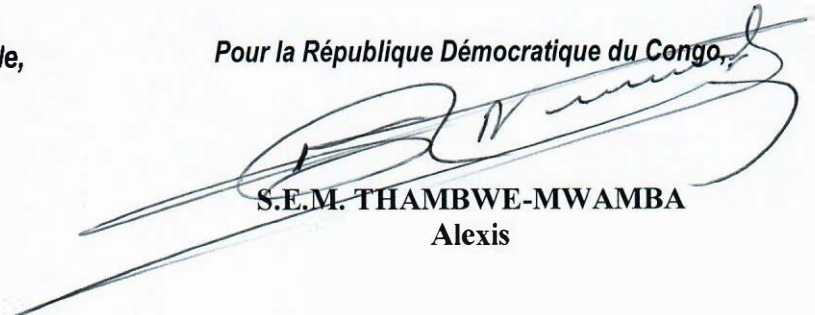 le,
Pour la République Démocratique du Congo,
S.E.M. THAMBWE-MWAMBA
Alexis